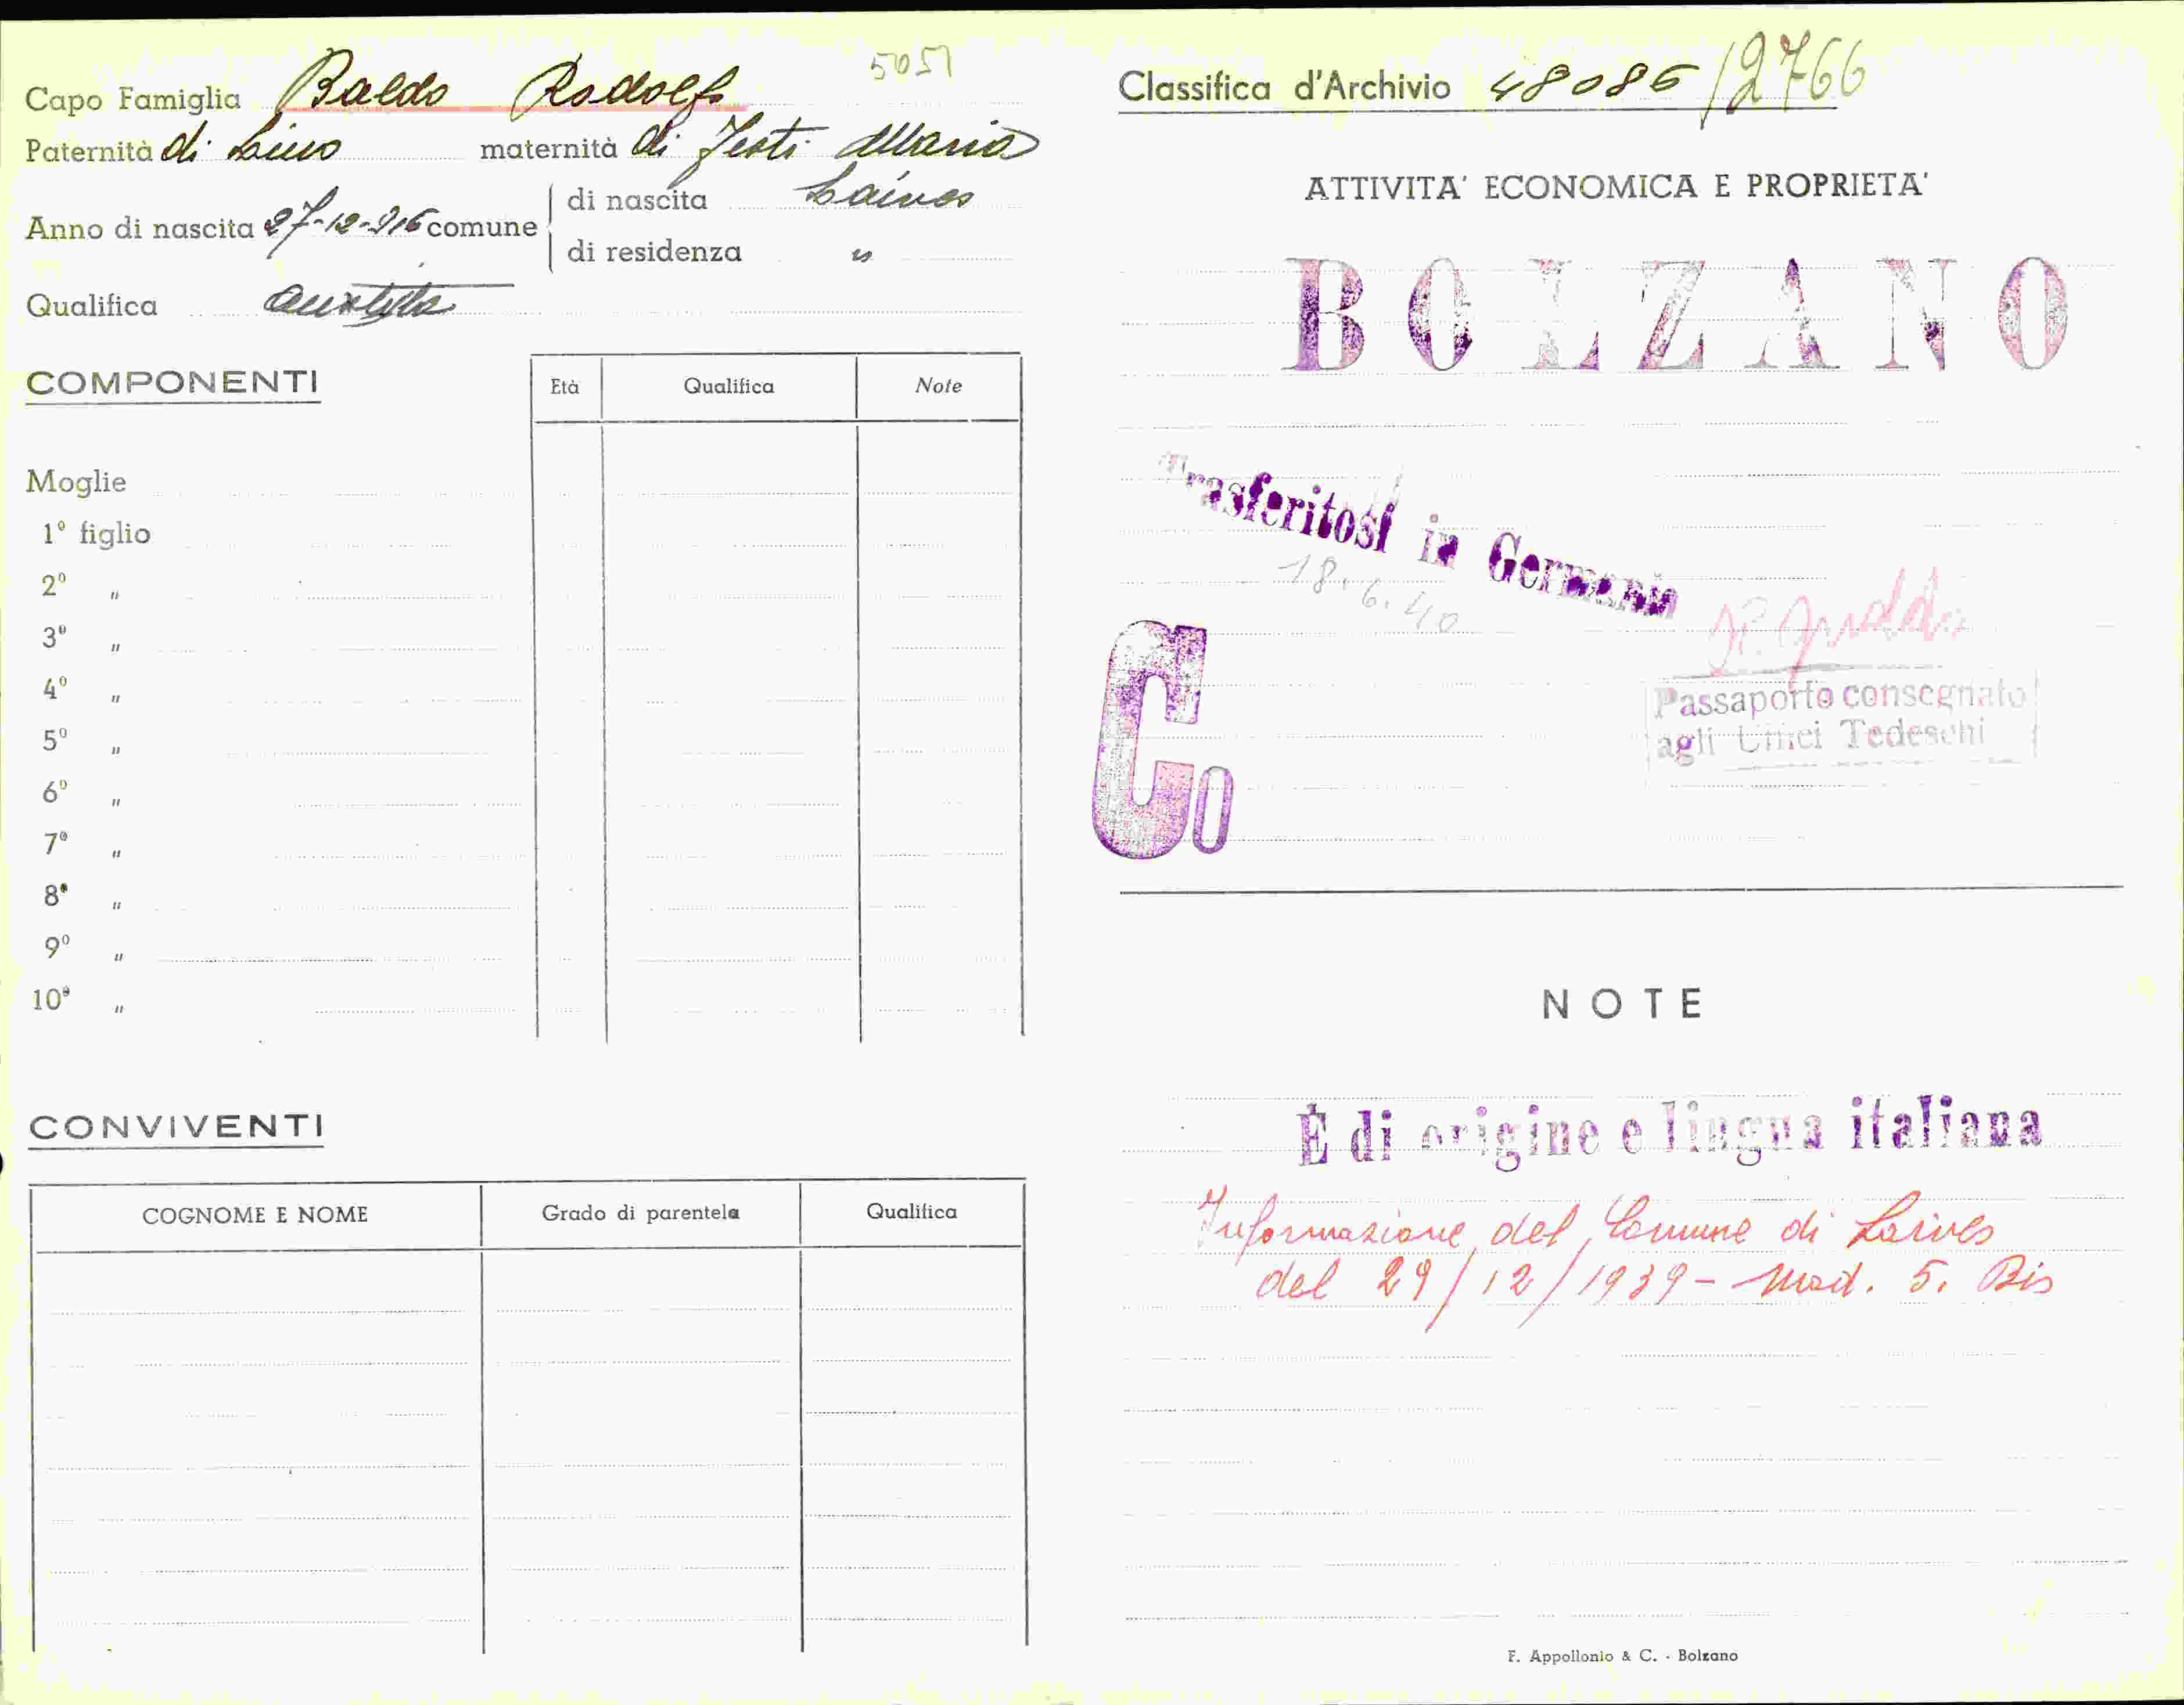 Capo Famiglia Baldo Rodolfo 5051
Paternità di Lino maternità di Testi Maria
Anno di nascita 27-12-916 comune di nascita Laives
di residenza "
Qualifica autista
COMPONENTI
Età Qualifica Note
Moglie
1º figlio
2º "
3º "
4º "
5º "
6º "
7º "
8º "
9º "
10º "
CONVIVENTI
COGNOME E NOME Grado di parentela Qualifica
Classifica d'Archivio 48086/2766
ATTIVITA' ECONOMICA E PROPRIETA'
BOLZANO
Trasferitosi in Germania
18.6.40
Passaporto consegnato
agli Uffici Tedeschi
Co
NOTE
È di origine e lingua italiana
Informazione del Comune di Laives
del 29/12/1939 - Mod. 5. Bis
F. Appollonio & C. - Bolzano